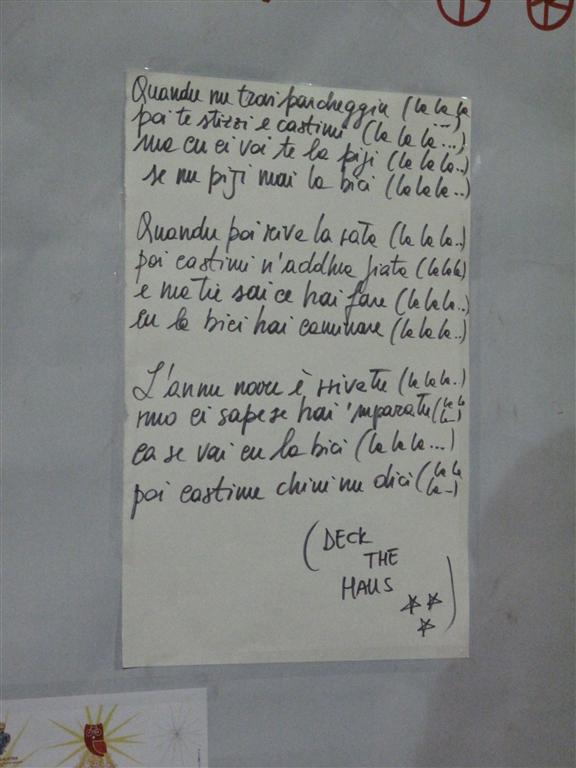 Quandu nu trovi parcheggiu (la la la
poi te stizzi e castimi (la la la ...)
ma cu ci voi te la piji (la la la..)
se nu piji mai la bici (la la la ..)
Quandu poi rriva la rata (la la la..)
poi castimi n'addhra fiata (la la la)
e ma tie sai ce hai fare (la la la..)
cu la bici hai caminare (la la la..)
L'annu novu è rrivatu (la la la.)
mo ci sape se hai 'mparatu (la la la –)
ca se vai cu la bici (la la la ...)
poi castime chiui nu dici (la la la –)
(DECK
THE
HALLS
)